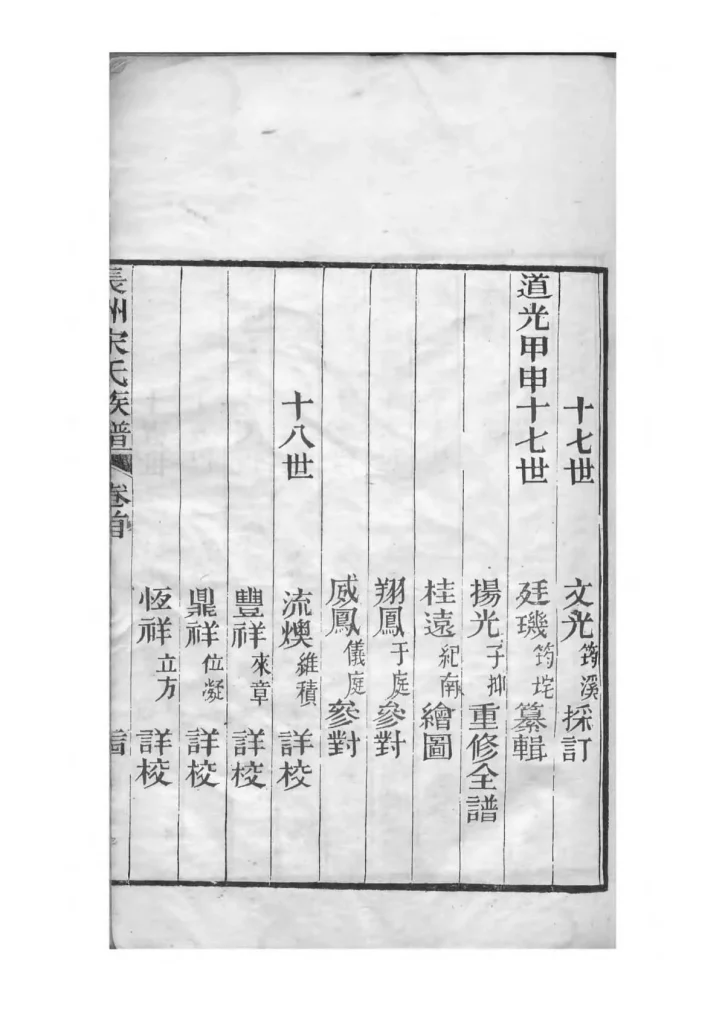 十七世 文光筠溪採訂
道光甲申十七世 廷璣筠坨纂輯
揚光子抑重修全譜
桂遠紀南繪圖
翔鳳于庭參對
威鳳儀庭參對
十八世 流燠維積詳校
豐祥來章詳校
鼎祥位凝詳校
恆祥立方詳校
長洲宋氏族譜 卷首